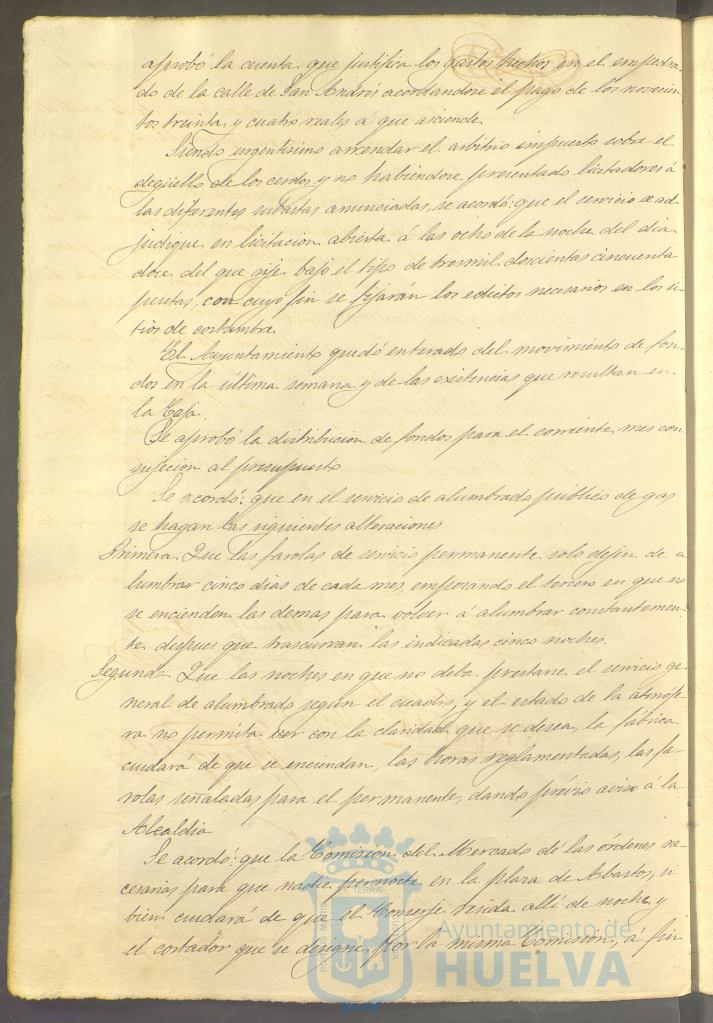 aprobó la cuenta que justifica los gastos hechos en el empedra-
do de la calle de San Andrés acordandose el pago de los novecien-
tos treinta y cuatro reales á que asciende.
Siendo urgentísimo arrendar el arbitrio impuesto sobre el
degüello de los cerdos y no habiendose presentado licitadores á
las diferentes subastas anunciadas, se acordó: que el servicio se ad-
judique en licitacion abierta á las ocho de la noche del dia
doce del que rije bajo el tipo de tresmil doscientas cincuenta
pesetas, con cuyo fin se fijarán los edictos necesarios en los si-
tios de costumbre.
El Ayuntamiento quedó enterado del movimiento de fon-
dos en la última semana y de las existencias que resultan en
la Caja.
Se aprobó la distribucion de fondos para el corriente mes con
sujecion al presupuesto
Se acordó: que en el servicio de alumbrado público de gas
se hagan las siguientes alteraciones
Primera. Que las farolas de servicio permanente solo dejen de a
lumbrar cinco dias de cada mes, empezando el tercero en que no
se encienden las demas para volver á alumbrar constantemen-
te despues que trascurran las indicadas cinco noches.
Segunda. Que las noches en que no deba prestarse el servicio ge-
neral de alumbrado segun el cuadro, y el estado de la atmósfe-
ra no permita ver con la claridad que se desea, la fábrica
cuidará de que se enciendan, las horas reglamentadas, las fa-
rolas señaladas para el permanente, dando prévio aviso á la
Alcaldia
Se acordó: que la Comision del Mercado dé las órdenes ne-
cesarias para que nadie pernocte en la plaza de Abastos, si
bien cuidará de que el Conserje resida allí de noche y
el cortador que se designe por la misma Comision, á fin
Ayuntamiento de
HUELVA